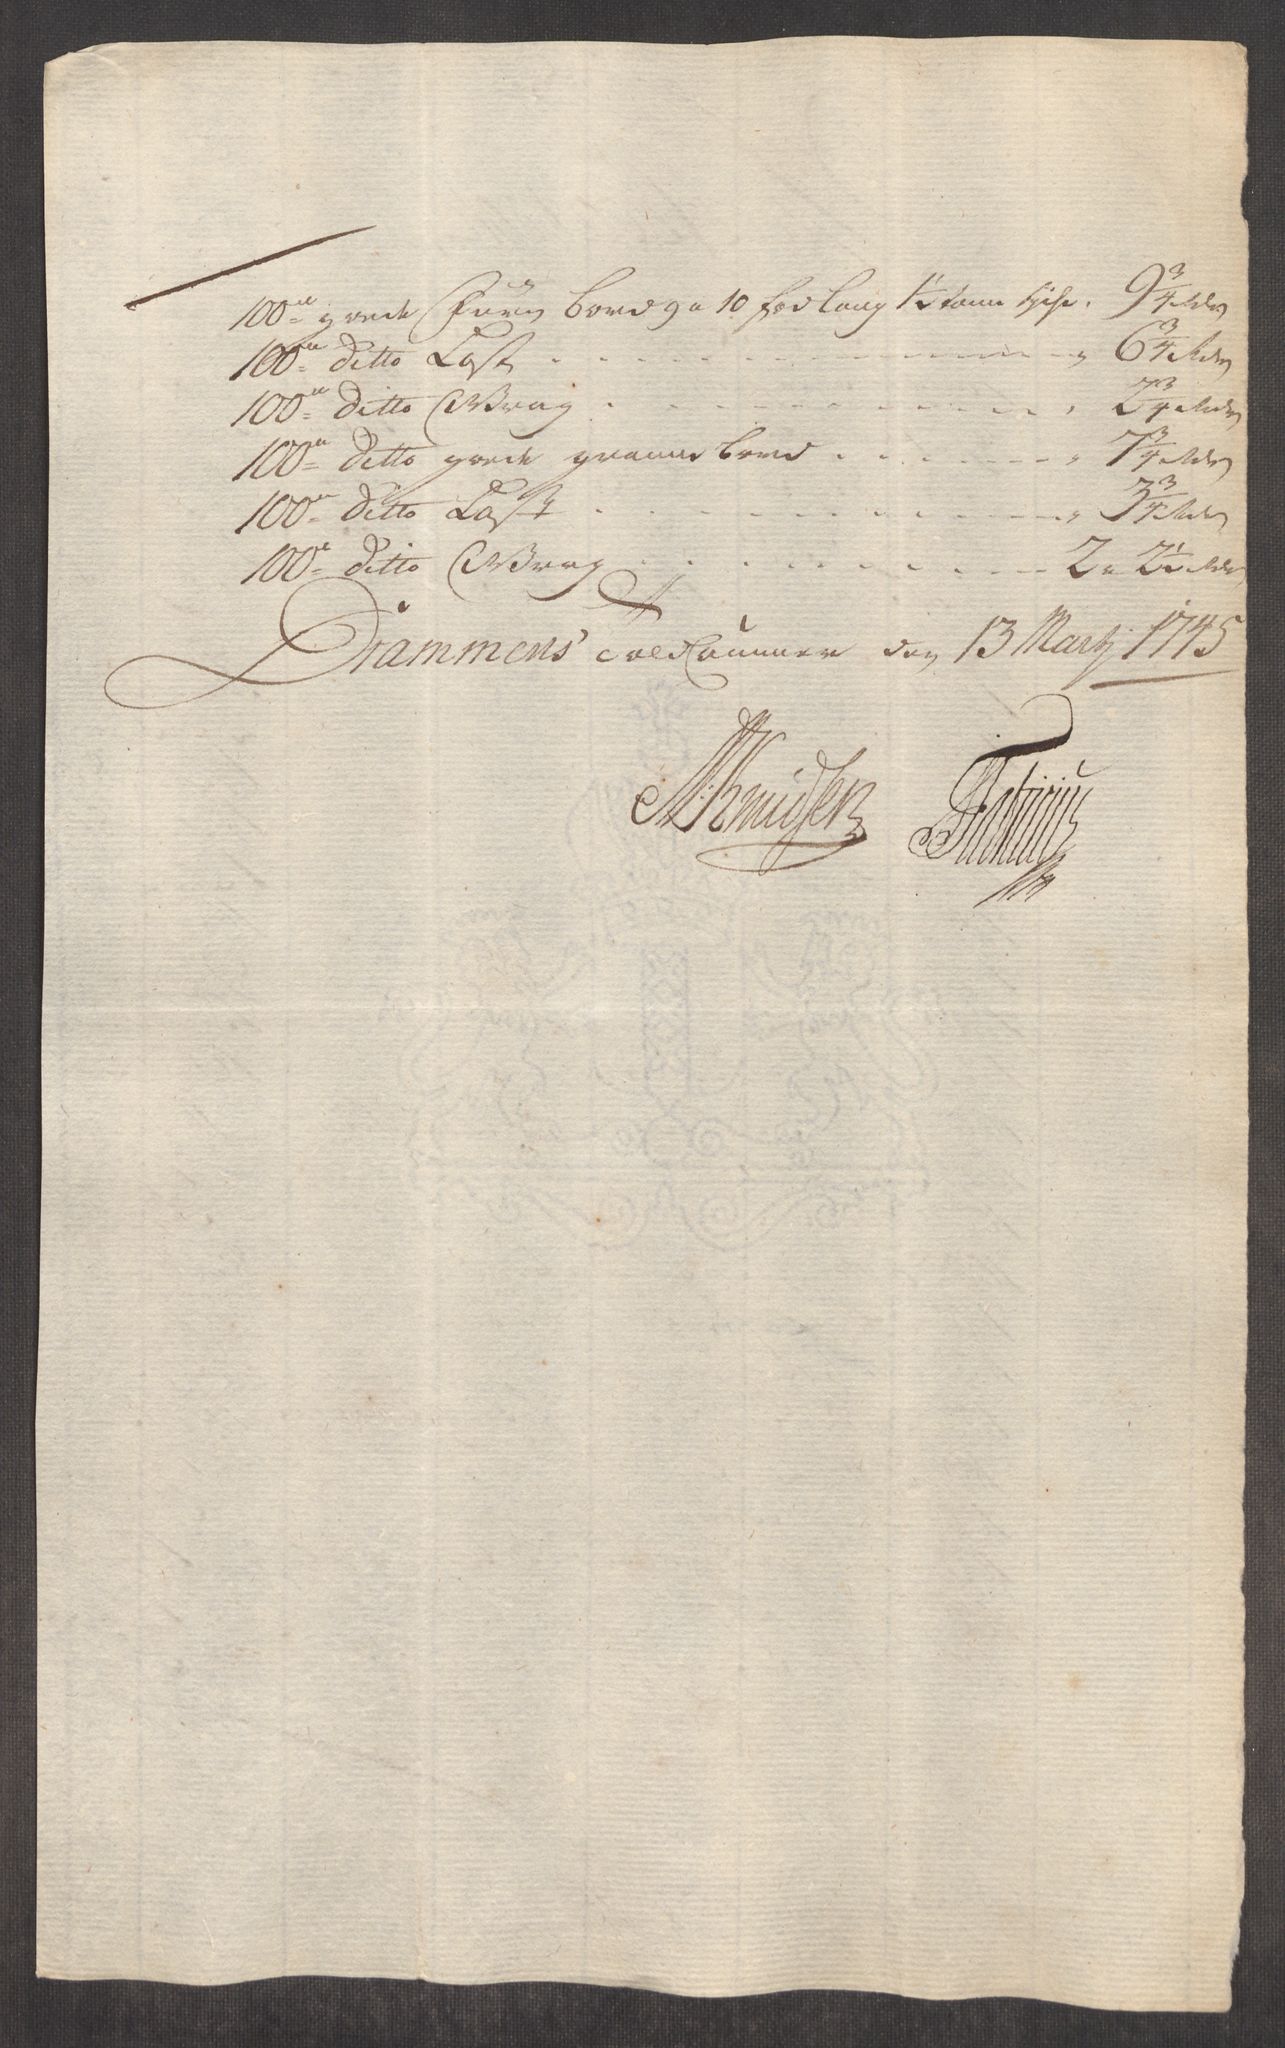 100de goede Furu bord 9 a 10 fod lang 1½ tom tyk. 9¾ rdlr
100de ditto Last 6¾ rdlr
100de ditto Wrag 2¾ rdlr
100de ditto goede granne bord 7¾ rdlr
100de ditto Last 3¾ rdlr
100de ditto Wrag 2 a 2½ rdlr
Drammens Told Cammer den 13 Martj 1745
Knudsen Fabricius